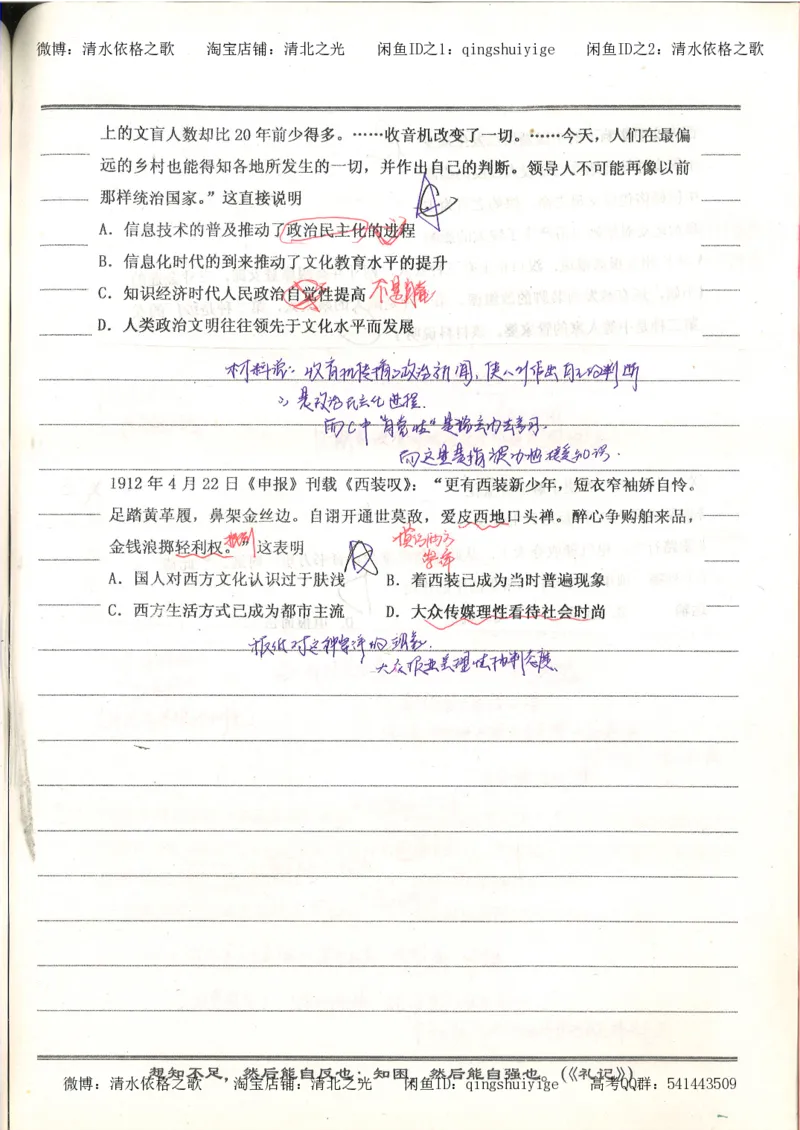 微博：清水依格之歌 淘宝店铺：清北之光 闲鱼ID之1：qingshuiyige 闲鱼ID之2：清水依格之歌
上的文盲人数却比 20 年前少得多。……收音机改变了一切。……今天，人们在最偏
远的乡村也能得知各地所发生的一切，并作出自己的判断。领导人不可能再像以前
那样统治国家。”这直接说明
A．信息技术的普及推动了政治民主化的进程
B．信息化时代的到来推动了文化教育水平的提升
C．知识经济时代人民政治自觉性提高 不是自觉
D．人类政治文明往往领先于文化水平而发展
材料说：收音机传播了政治新闻，使人们作出自己的判断
∴是政治民主化进程.
而C中“自觉性”是指主动去学习.
而这里是指被动地接受知识.
1912 年 4 月 22 日《申报》刊载《西装叹》：“更有西装新少年，短衣窄袖娇自怜。
足踏黄革履，鼻架金丝边。自诩开通世莫敌，爱皮西地口头禅。醉心争购舶来品，
金钱浪掷轻利权。”这表明
A．国人对西方文化认识过于肤浅 B．着西装已成为当时普遍现象
C．西方生活方式已成为都市主流 D．大众传媒理性看待社会时尚
想知不足，然后能自反也；知困，然后能自强也。(《礼记》)
微博：清水依格之歌 淘宝店铺：清北之光 闲鱼ID：qingshuiyige 高考QQ群：541443509